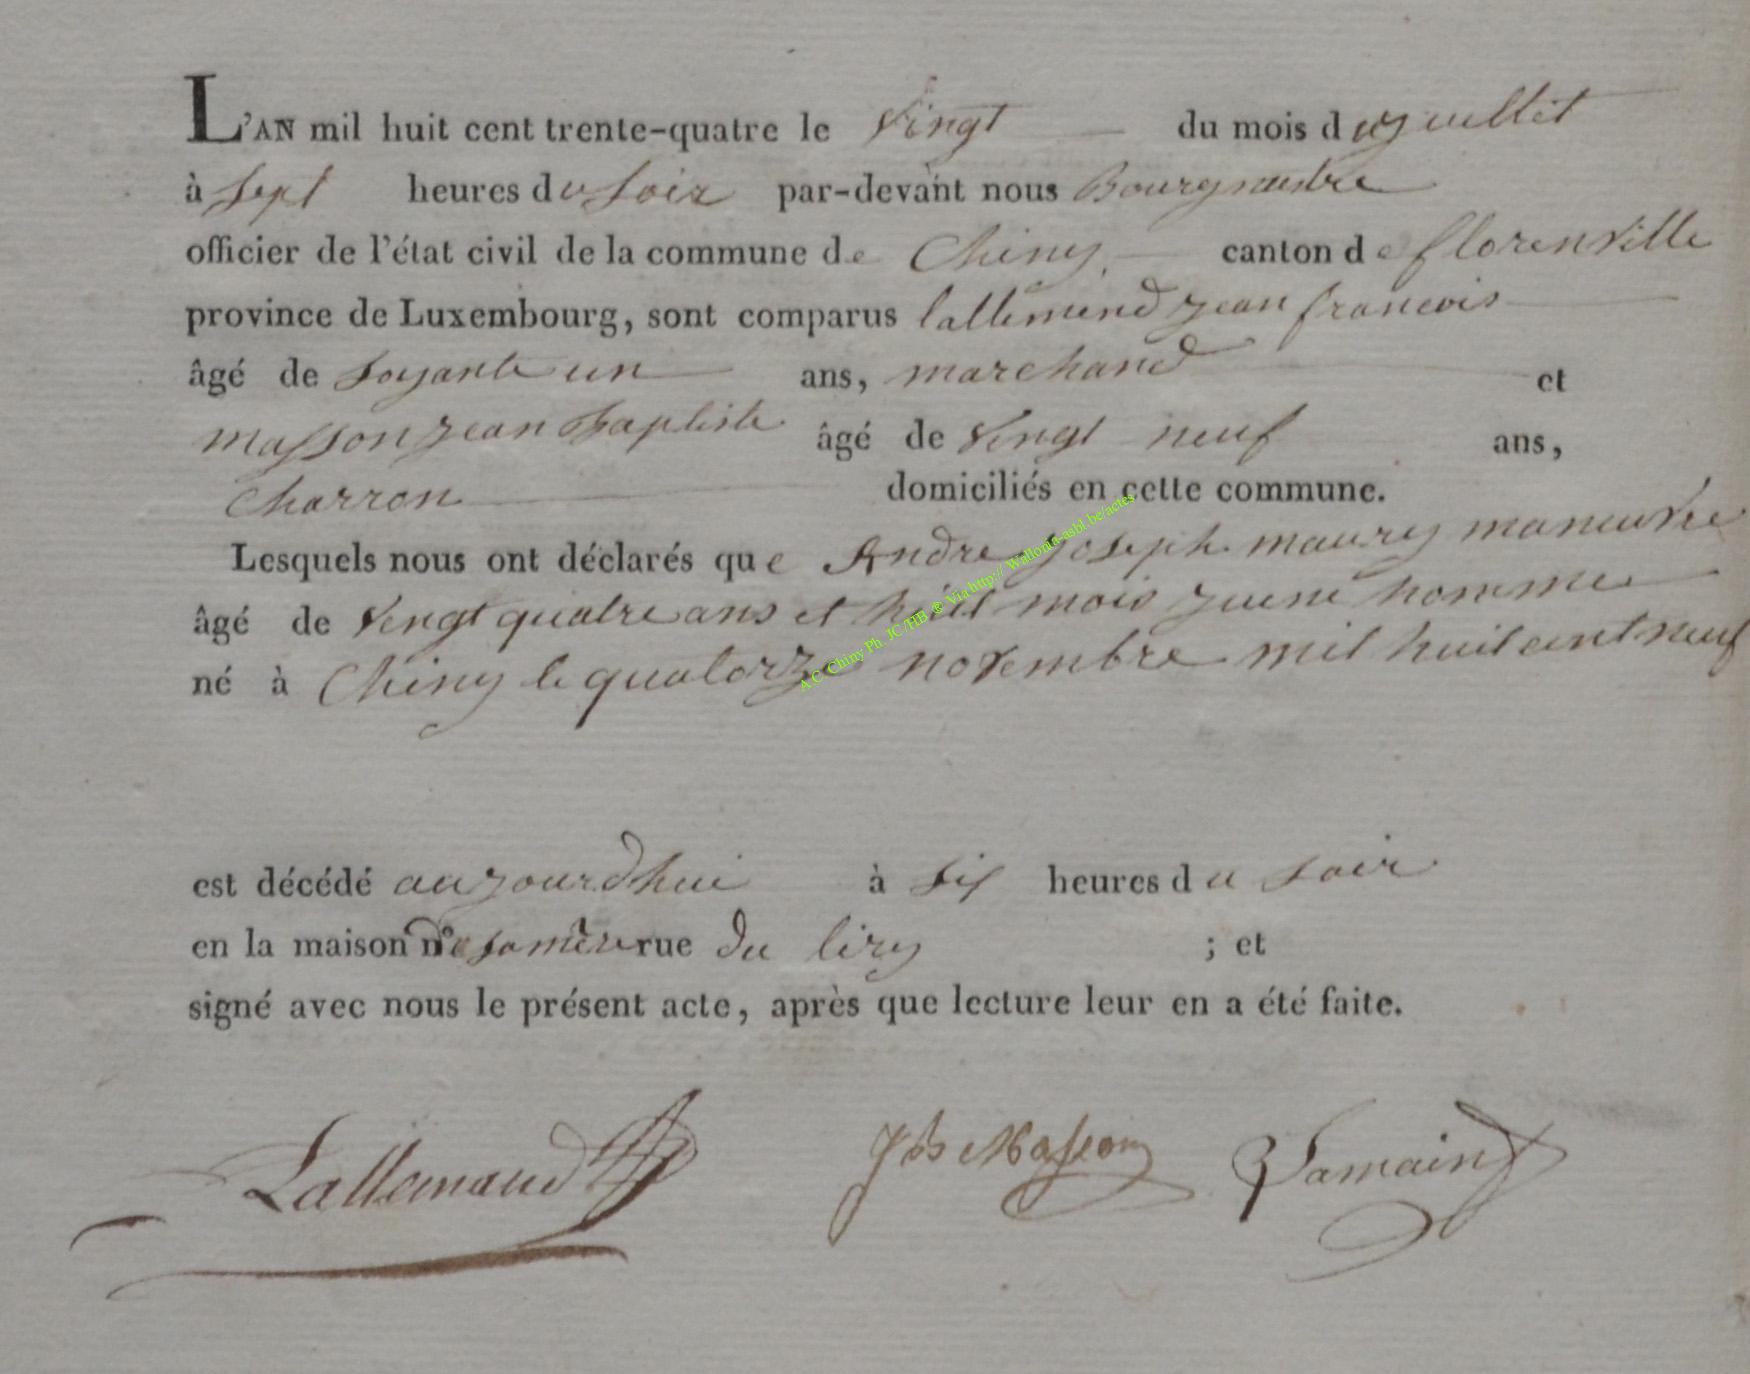 L'AN mil huit cent trente-quatre le vingt du mois du juillet
à sept heures du soir par-devant nous Bourgmestre
officier de l'état civil de la commune de Chiny, canton de florenville
province de Luxembourg, sont comparus lallemend jean francois
âgé de soyante un ans, marchand et
masson jean Baptiste âgé de vingt neuf ans,
charron domiciliés en cette commune.
Lesquels nous ont déclarés que Andre Joseph maury maneuvre
âgé de vingt quatre ans et huit mois jeune homme
né à Chiny le quatorze novembre mil huit cent neuf
A C Chiny Ph. JC /HB ® Via http:// Wallonia-asbl.be/actes
est décédé aujourdhui à six heures du soir
en la maison de sa mère rue du liry ; et
signé avec nous le présent acte, après que lecture leur en a été faite.
Lallemand JB Masson Jamain